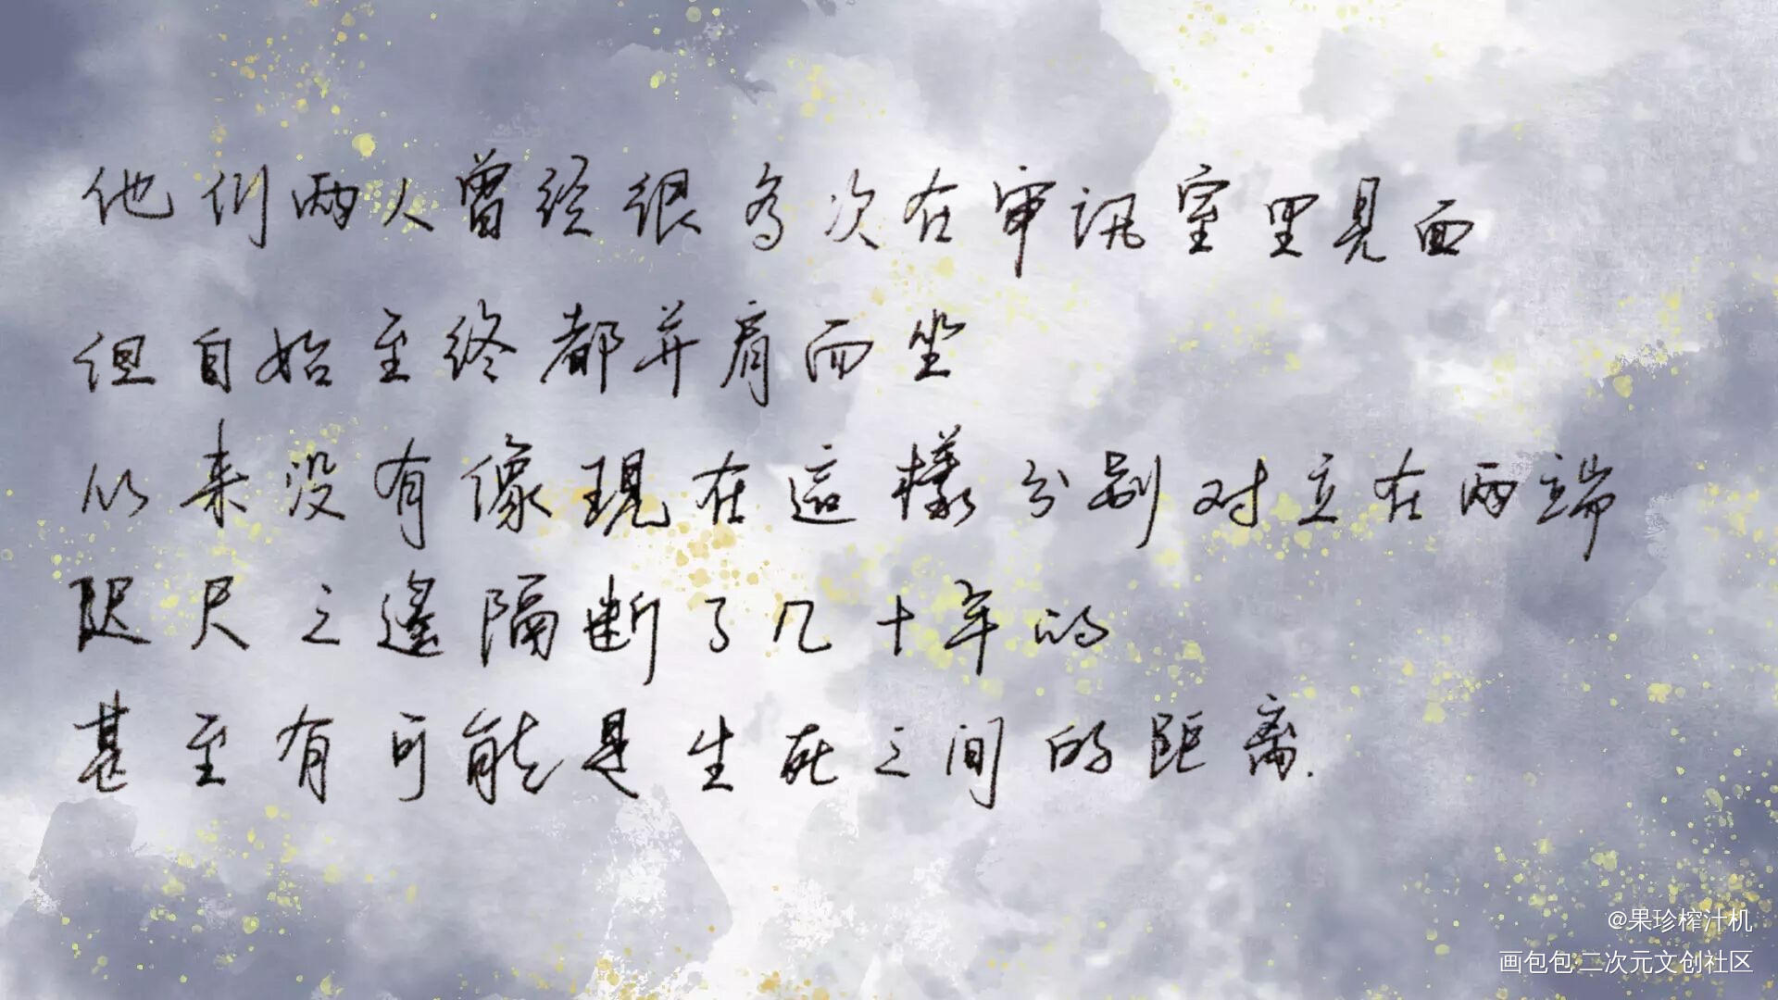 他们两人曾经很多次在审讯室里见面
但自始至终都并肩而坐
从来没有像現在這樣分别对立在两端
咫尺之邊隔断了几十年的
甚至有可能是生死之间的距离.
@果珍榨汁机
画包包·二次元文创社区